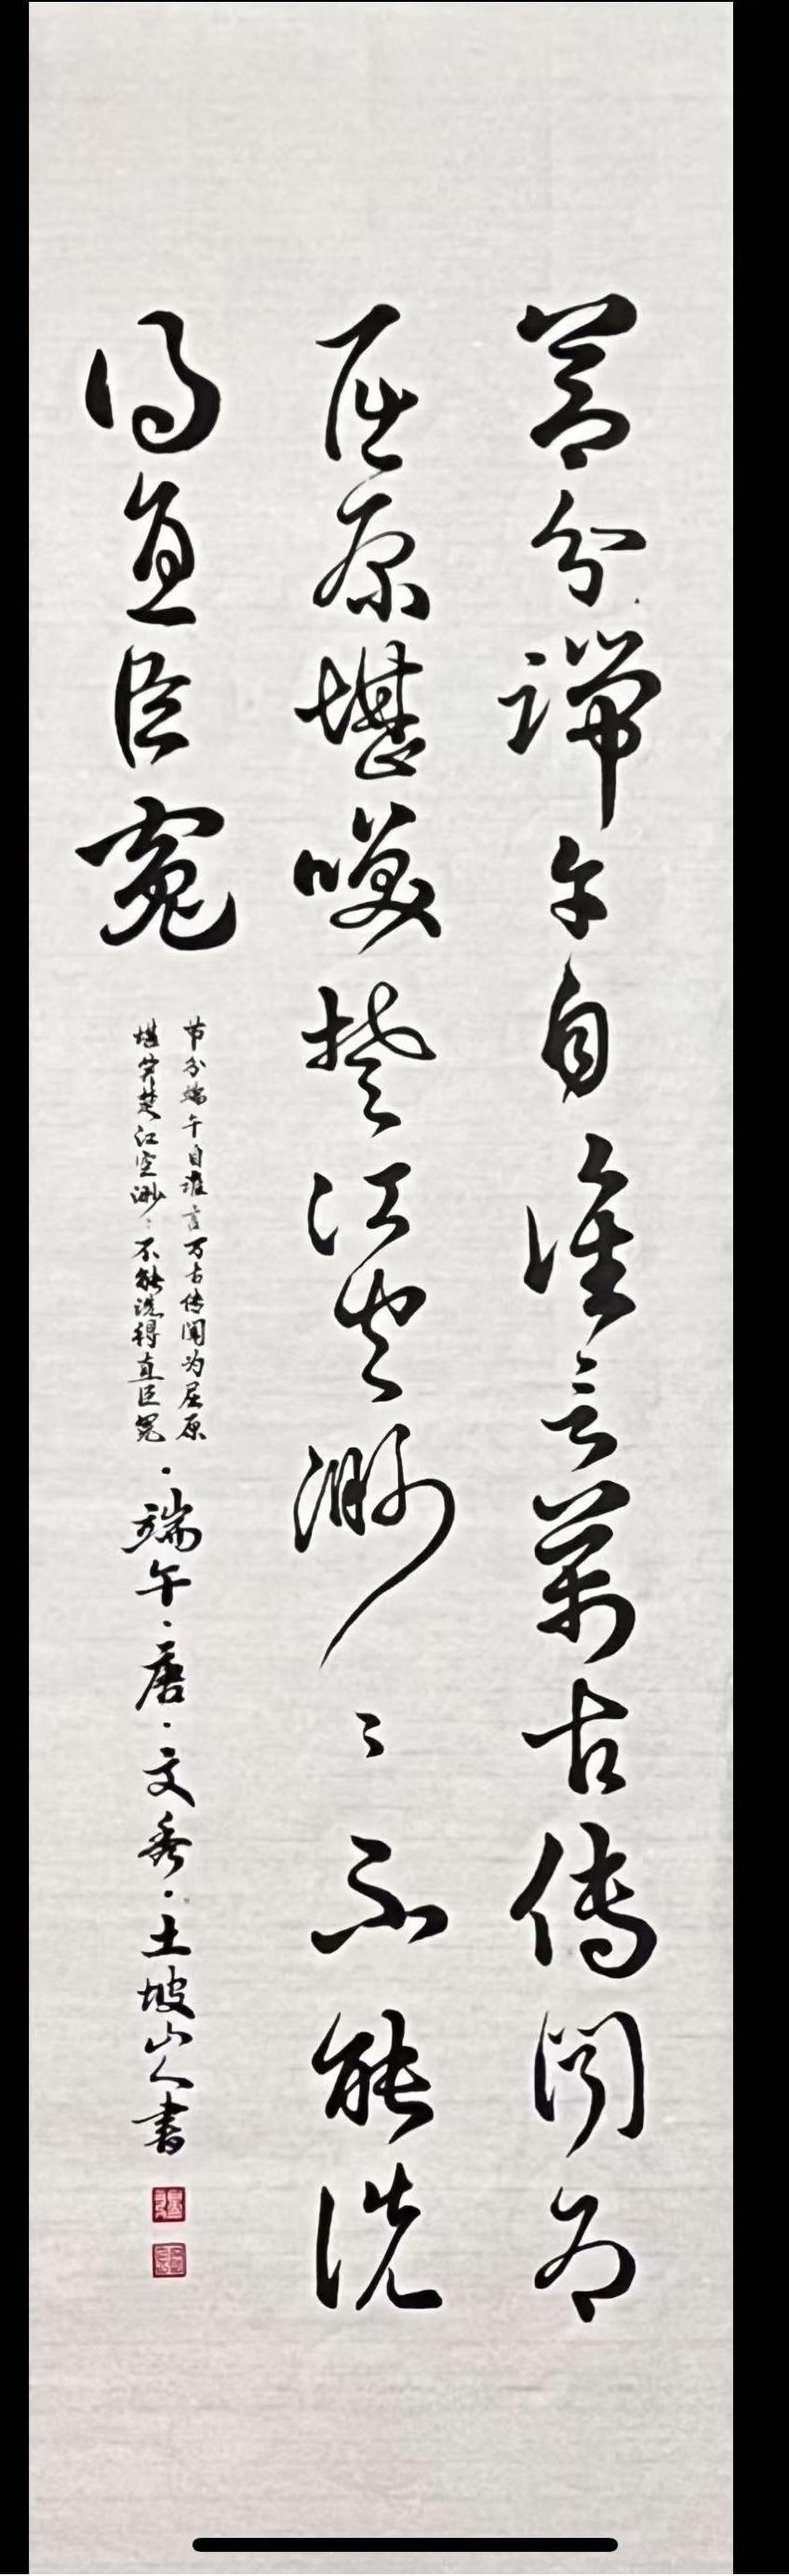 節分端午自谁言萬古傳闻为
屈原堪嘆楚江空渺〻不能洗
得直臣冤
节分端午自谁言万古传闻为屈原
堪笑楚江空渺〻不能洗得直臣冤
·端午·唐·文秀·土坡山人書